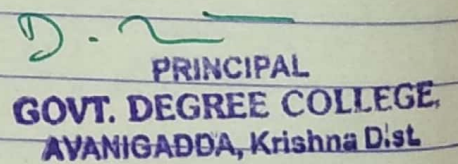 PRINCIPAL
GOVT. DEGREE COLLEGE,
AVANIGADDA, Krishna Dist.